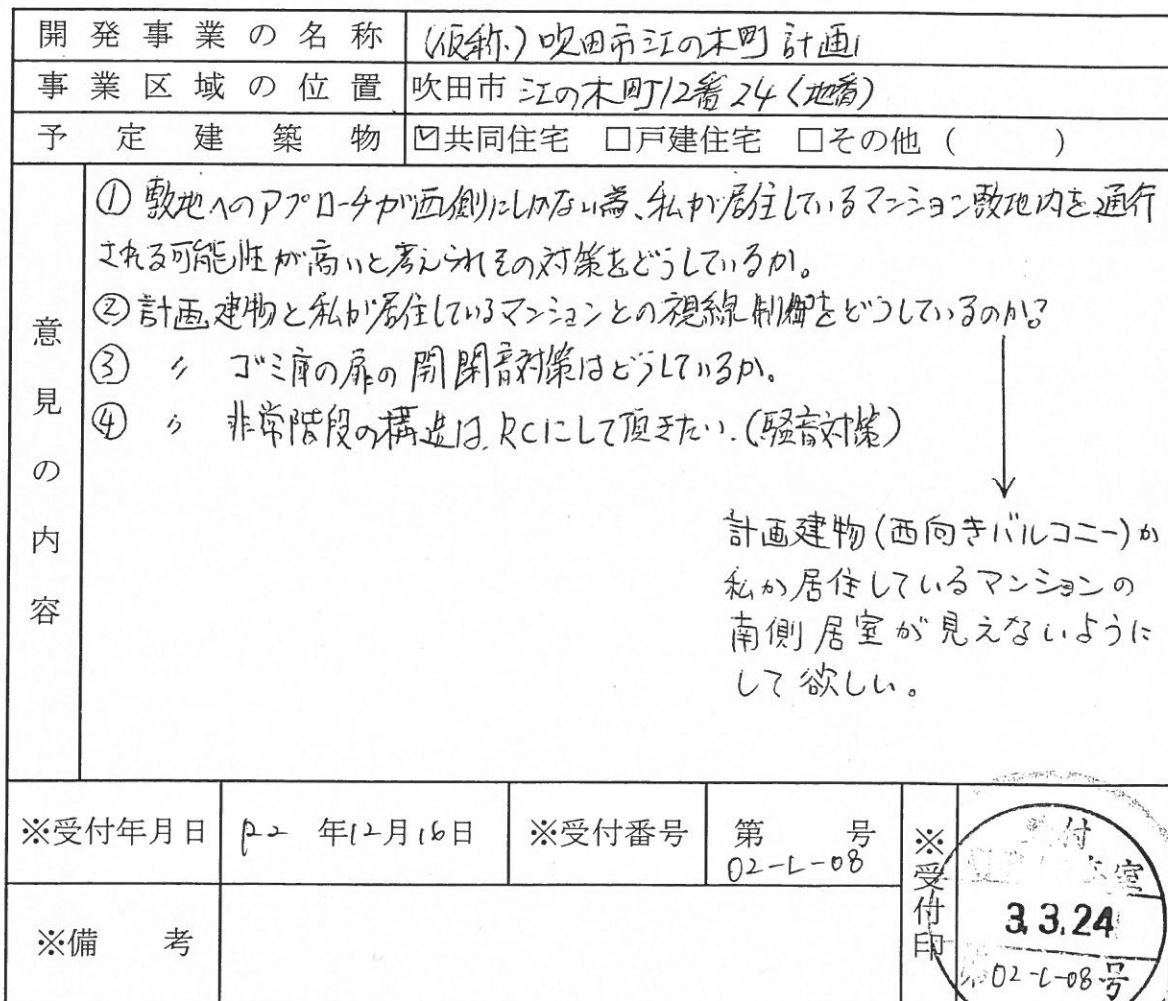 開発事業の名称 (仮称)吹田市江の木町計画
事業区域の位置 吹田市 江の木町12番24(地番)
予定建築物 ☑共同住宅 □戸建住宅 □その他( )
意見の内容
①敷地へのアプローチが西側にしかない為、私が居住しているマンション敷地内を通行
される可能性が高いと考えられその対策をどうしているか。
②計画建物と私が居住しているマンションとの視線制御をどうしているのか?
③ 〃 ゴミ庫の扉の開閉音対策はどうしているか。
④ 〃 非常階段の構造は、RCにして頂きたい.(騒音対策)
計画建物(西向きバルコニー)か
私が居住しているマンションの
南側居室が見えないように
して欲しい。
※受付年月日 R2 年12月16日 ※受付番号 第 号
02-L-08
※受付印
付
室
3.3.24
02-L-08号
※備考